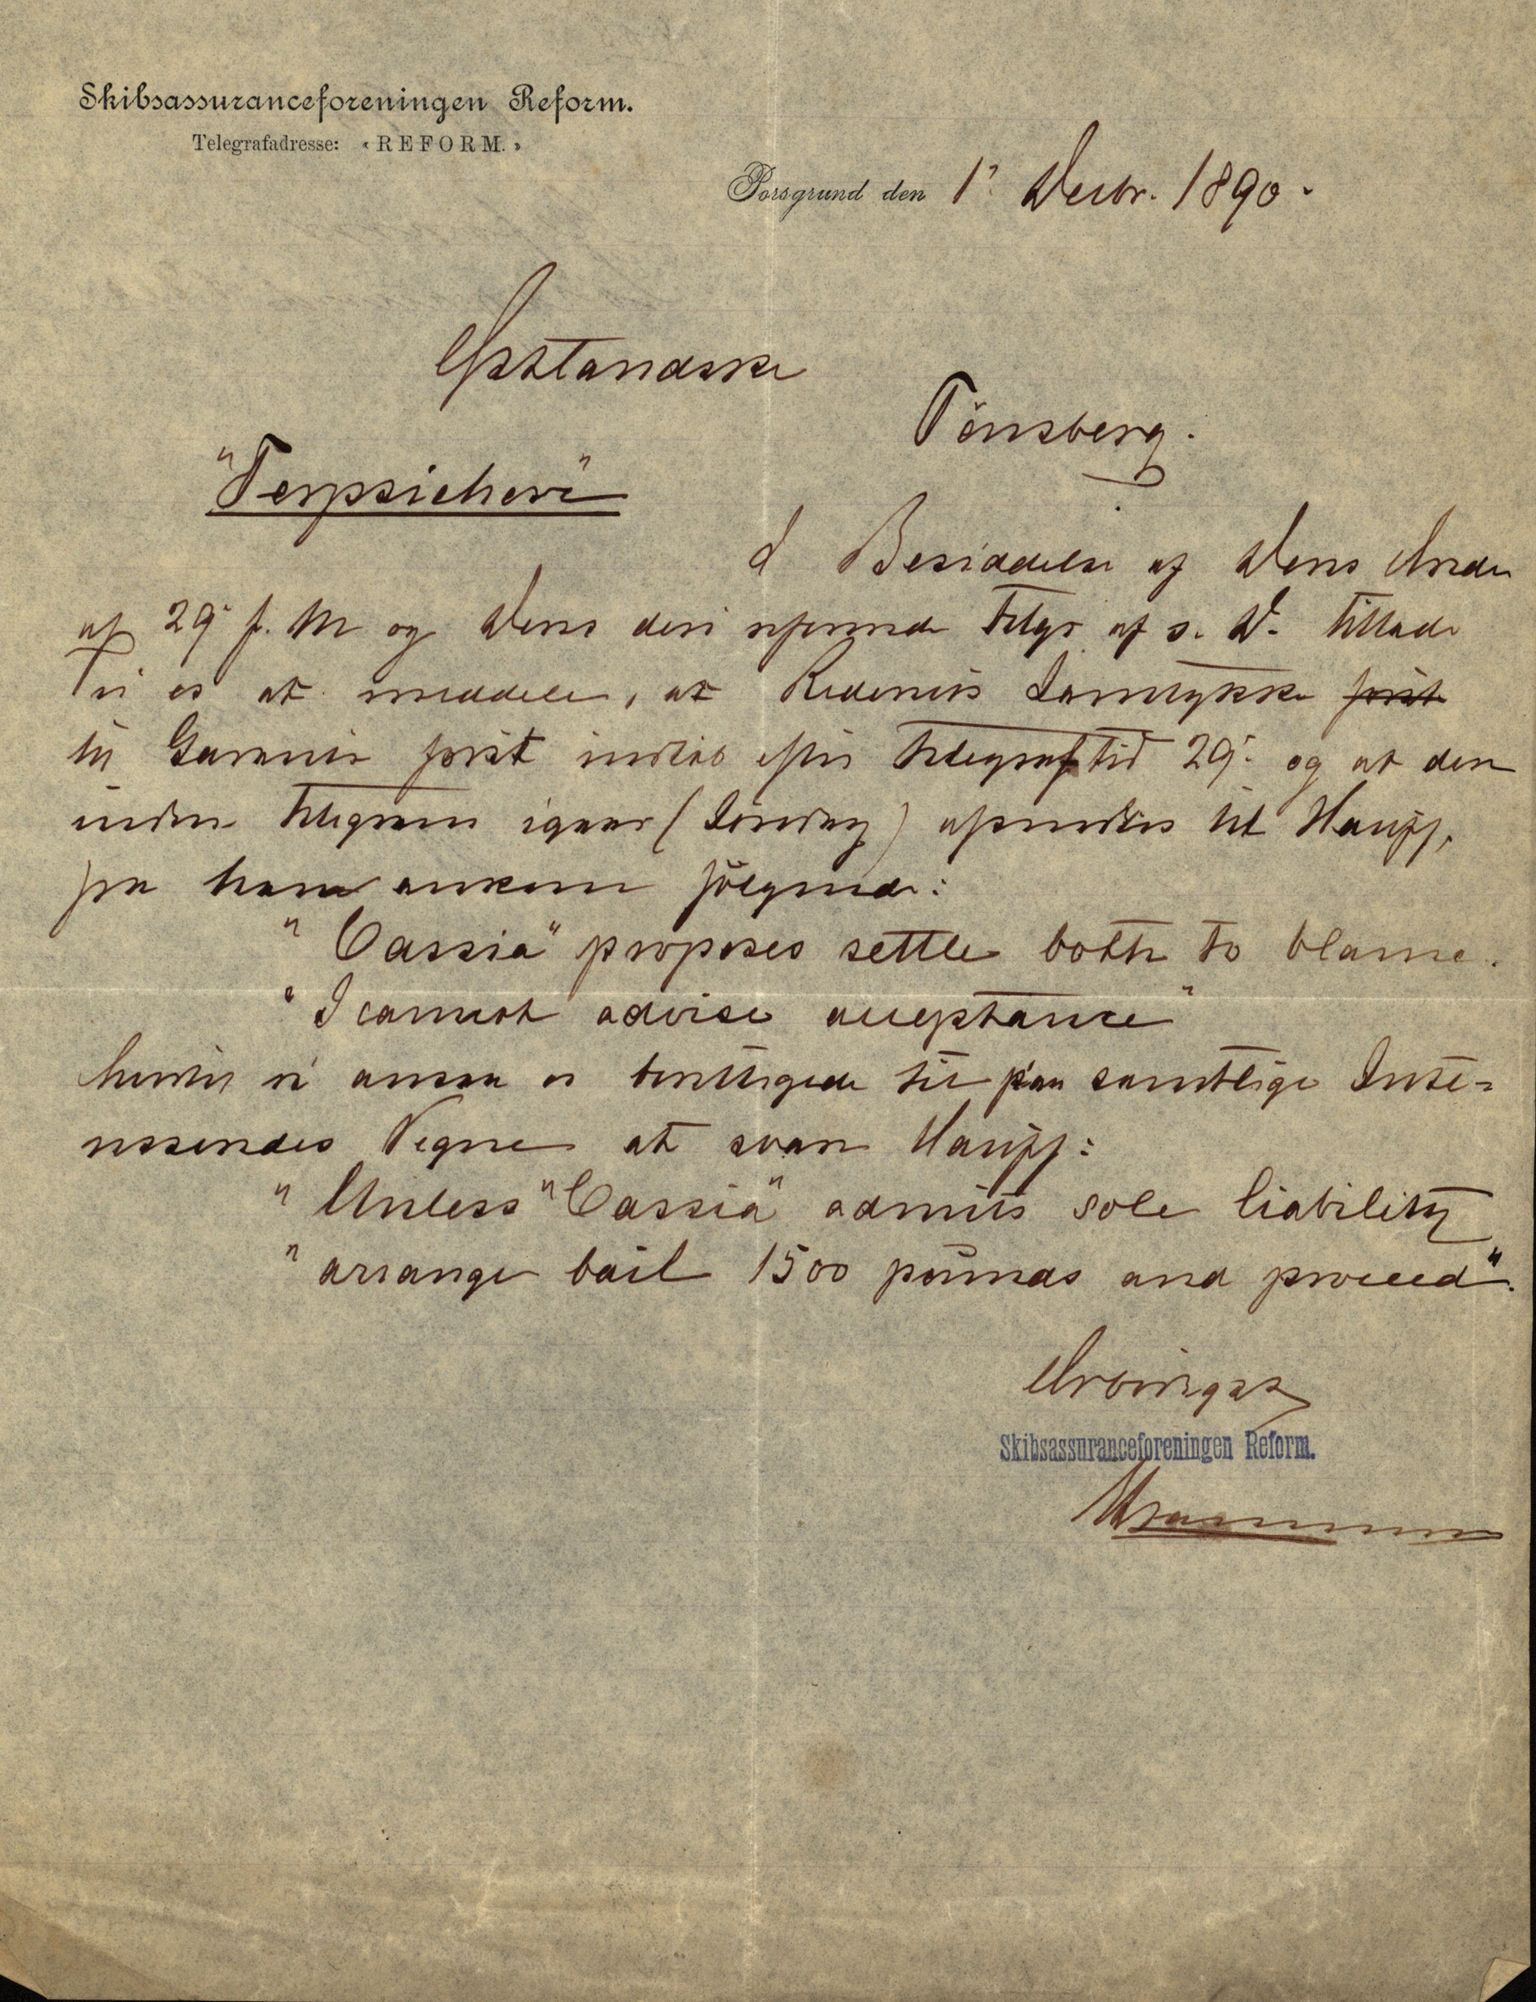 Skibsassuranceforeningen Reform.
Telegrafadresse: «REFORM.»
Porsgrund den 1' Decbr. 1890.
Østlandske
Tönsberg.
"Terpsichore"
I Besiddelse af Deres Ærede
af 29' f. M og Deres deri refererede Telgr af s. D. tillade
vi os at meddele, at Rederiets Samtykke først
til Garanti først indløb efter Telegraftid 29' og at der
inden Telegram igaar (Söndag) afsendtes til Haupp,
fra ham ankom fölgende:
"Cassia" proposes settle both to blame.
"I cannot advise acceptance"
hvorfor vi ansaa os berettigede til paa samtlige Inte-
ressendes Vegne at svare Haupp:
"Unless "Cassia" admits sole liability
"arrange bail 1500 pounds and proceed".
Ærbödigst
Skibsassuranceforeningen Reform.